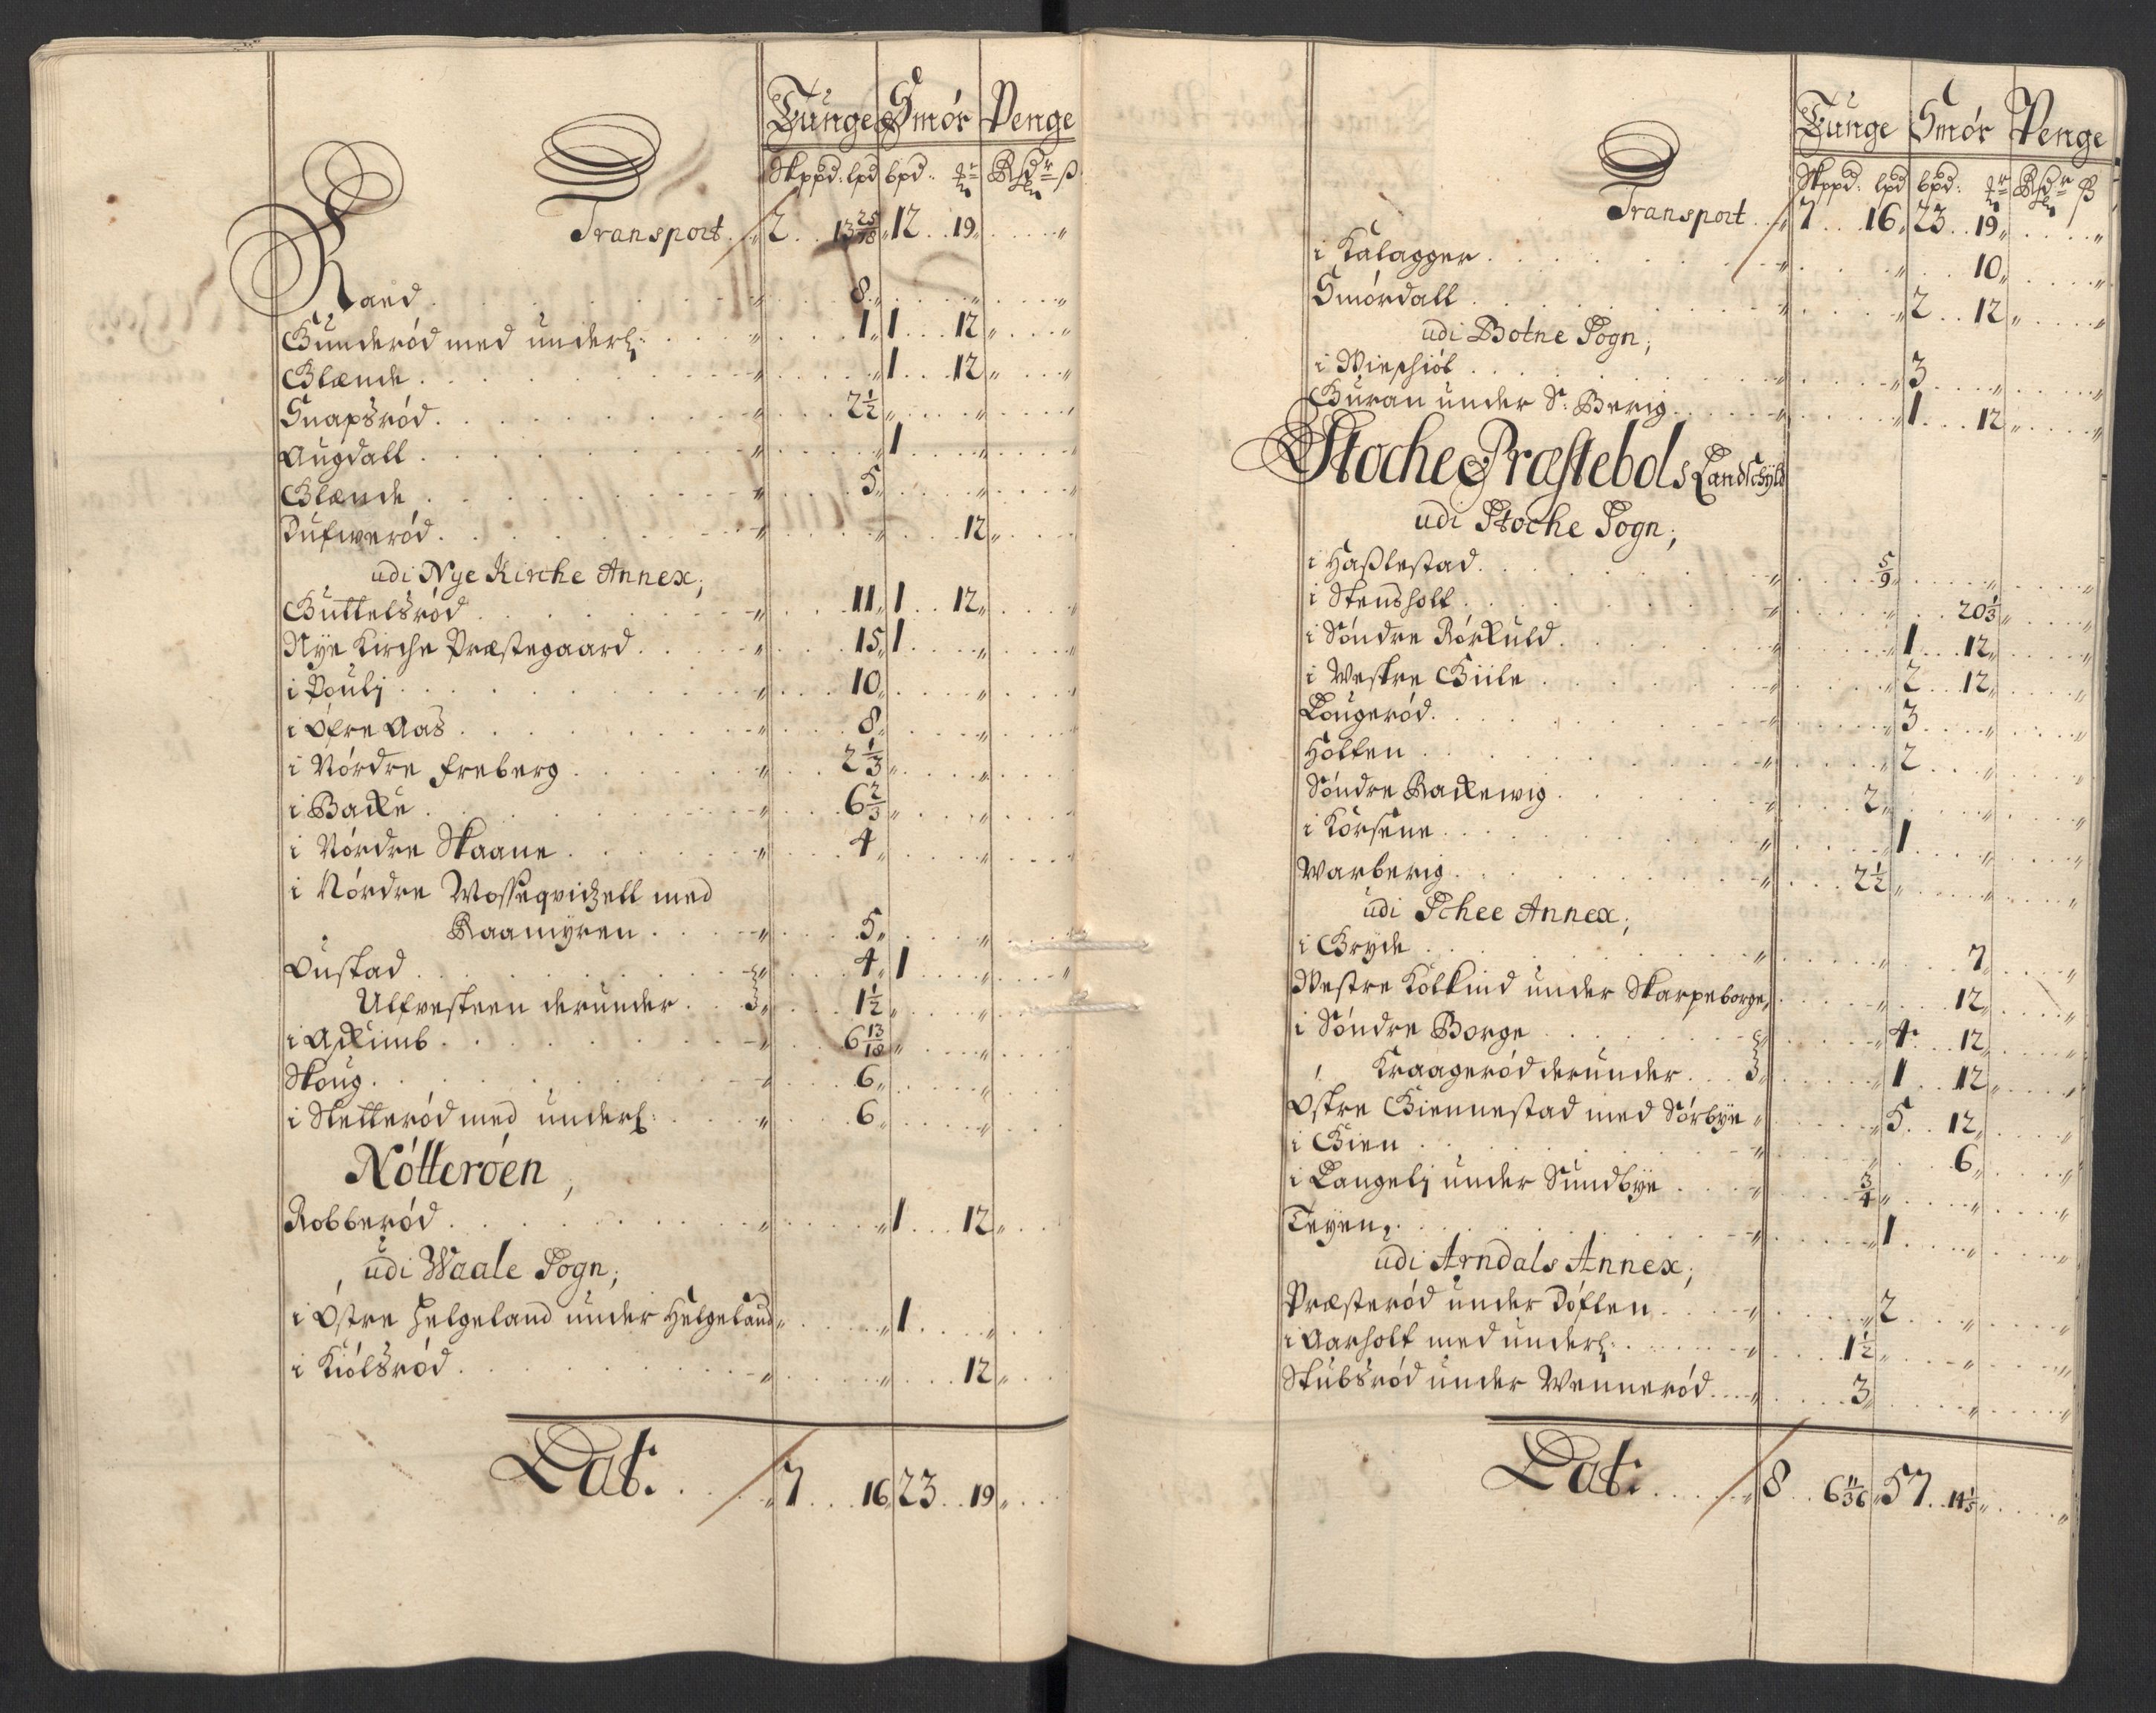 Tunge Smór Penge
Skppd: lpd bpd: mr Rdr ß
Transport. 2 .. 13 25/18 12 .. 19
Raed 8
Gunderód med underl: 1 1 .. 12
Glende 1 .. 12
Snapsród 2 1/2
Augdall 1
Glende 5
Dufweród 12
udi Nye Kirche Annex;
Guttelsród 11 1 .. 12
Nye Kirche Præstegaard 15 1
i Foulj 10
i Ofre Aas 8
i Nórdre Freberg 2 1/3
i Backe 6 2/3
i Nórdre Skaane 4
i Nórdre Wosseqvidzell med
Raamyren 5
Oustad 4 1
Ulfvesteen derunder 1 1/2
i Askimb 6 13/18
Skoug 6
i Sletteród med underl: 6
Nótteróen,
Robberód 1 .. 12
udi Waale Sogn;
i Óstre Helgeland under Helgeland 1
i Kiólsród 12
Lat: 7 .. 16 23 .. 19
Tunge Smór Penge
Skppd: lpd bpd: mr Rdr ß
Transport .. 7 .. 16 23 .. 19
i Kalagger 10
Smórdall 2 .. 12
udi Botne Sogn;
i Wieshiól 3
Guran under St: Berig 1 .. 12
Stoche Præstebols Landschyld
udi Stoche Sogn;
i Hasslestad 5/9
i Stensholt 20 1/3
i Sóndre Rórkuld 1 .. 12
i Westre Giile 2 .. 12
Lougeród 3
Holten 2
Sóndre Rackewig 2
i Korsene 1
Warberig 2 1/2
udi Schee Annex;
i Gryde 7
Westre Kolkind under Skarpeborge 12
i Sóndre Borge 4 .. 12
Kraageród derunder 1 .. 12
Óstre Giennestad med Sórbye 5 .. 12
i Gien 6
i Langelj under Sundbye 3/4
Teyen 1
udi Arndals Annex;
Præsteród under Dóflen 2
i Aarholt med underl: 1 1/2
Stubsród under Wenneród 3
Lat: 8 .. 6 11/36 57 .. 14 1/3